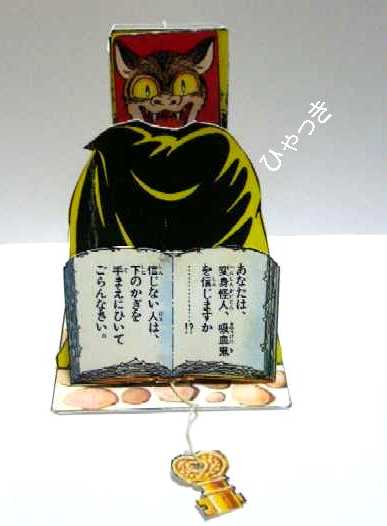 ひゃっき
あなたは、
変身怪人、吸血鬼
を信じますか
…………!?
信じない人は、
下のかぎを
手まえにひいて
ごらんなさい。